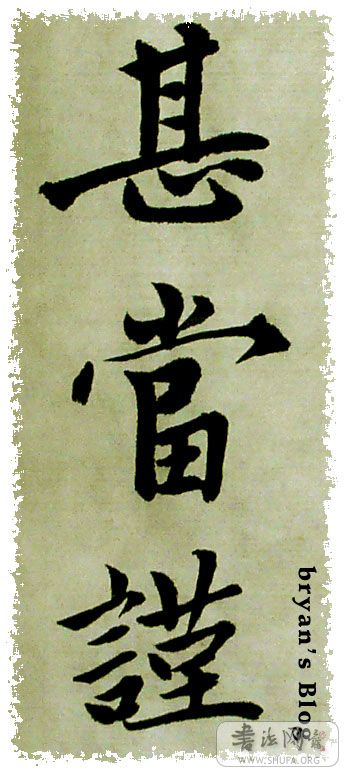 甚當謹
bryan's Blog
书法网
WWW.SHUFA.ORG